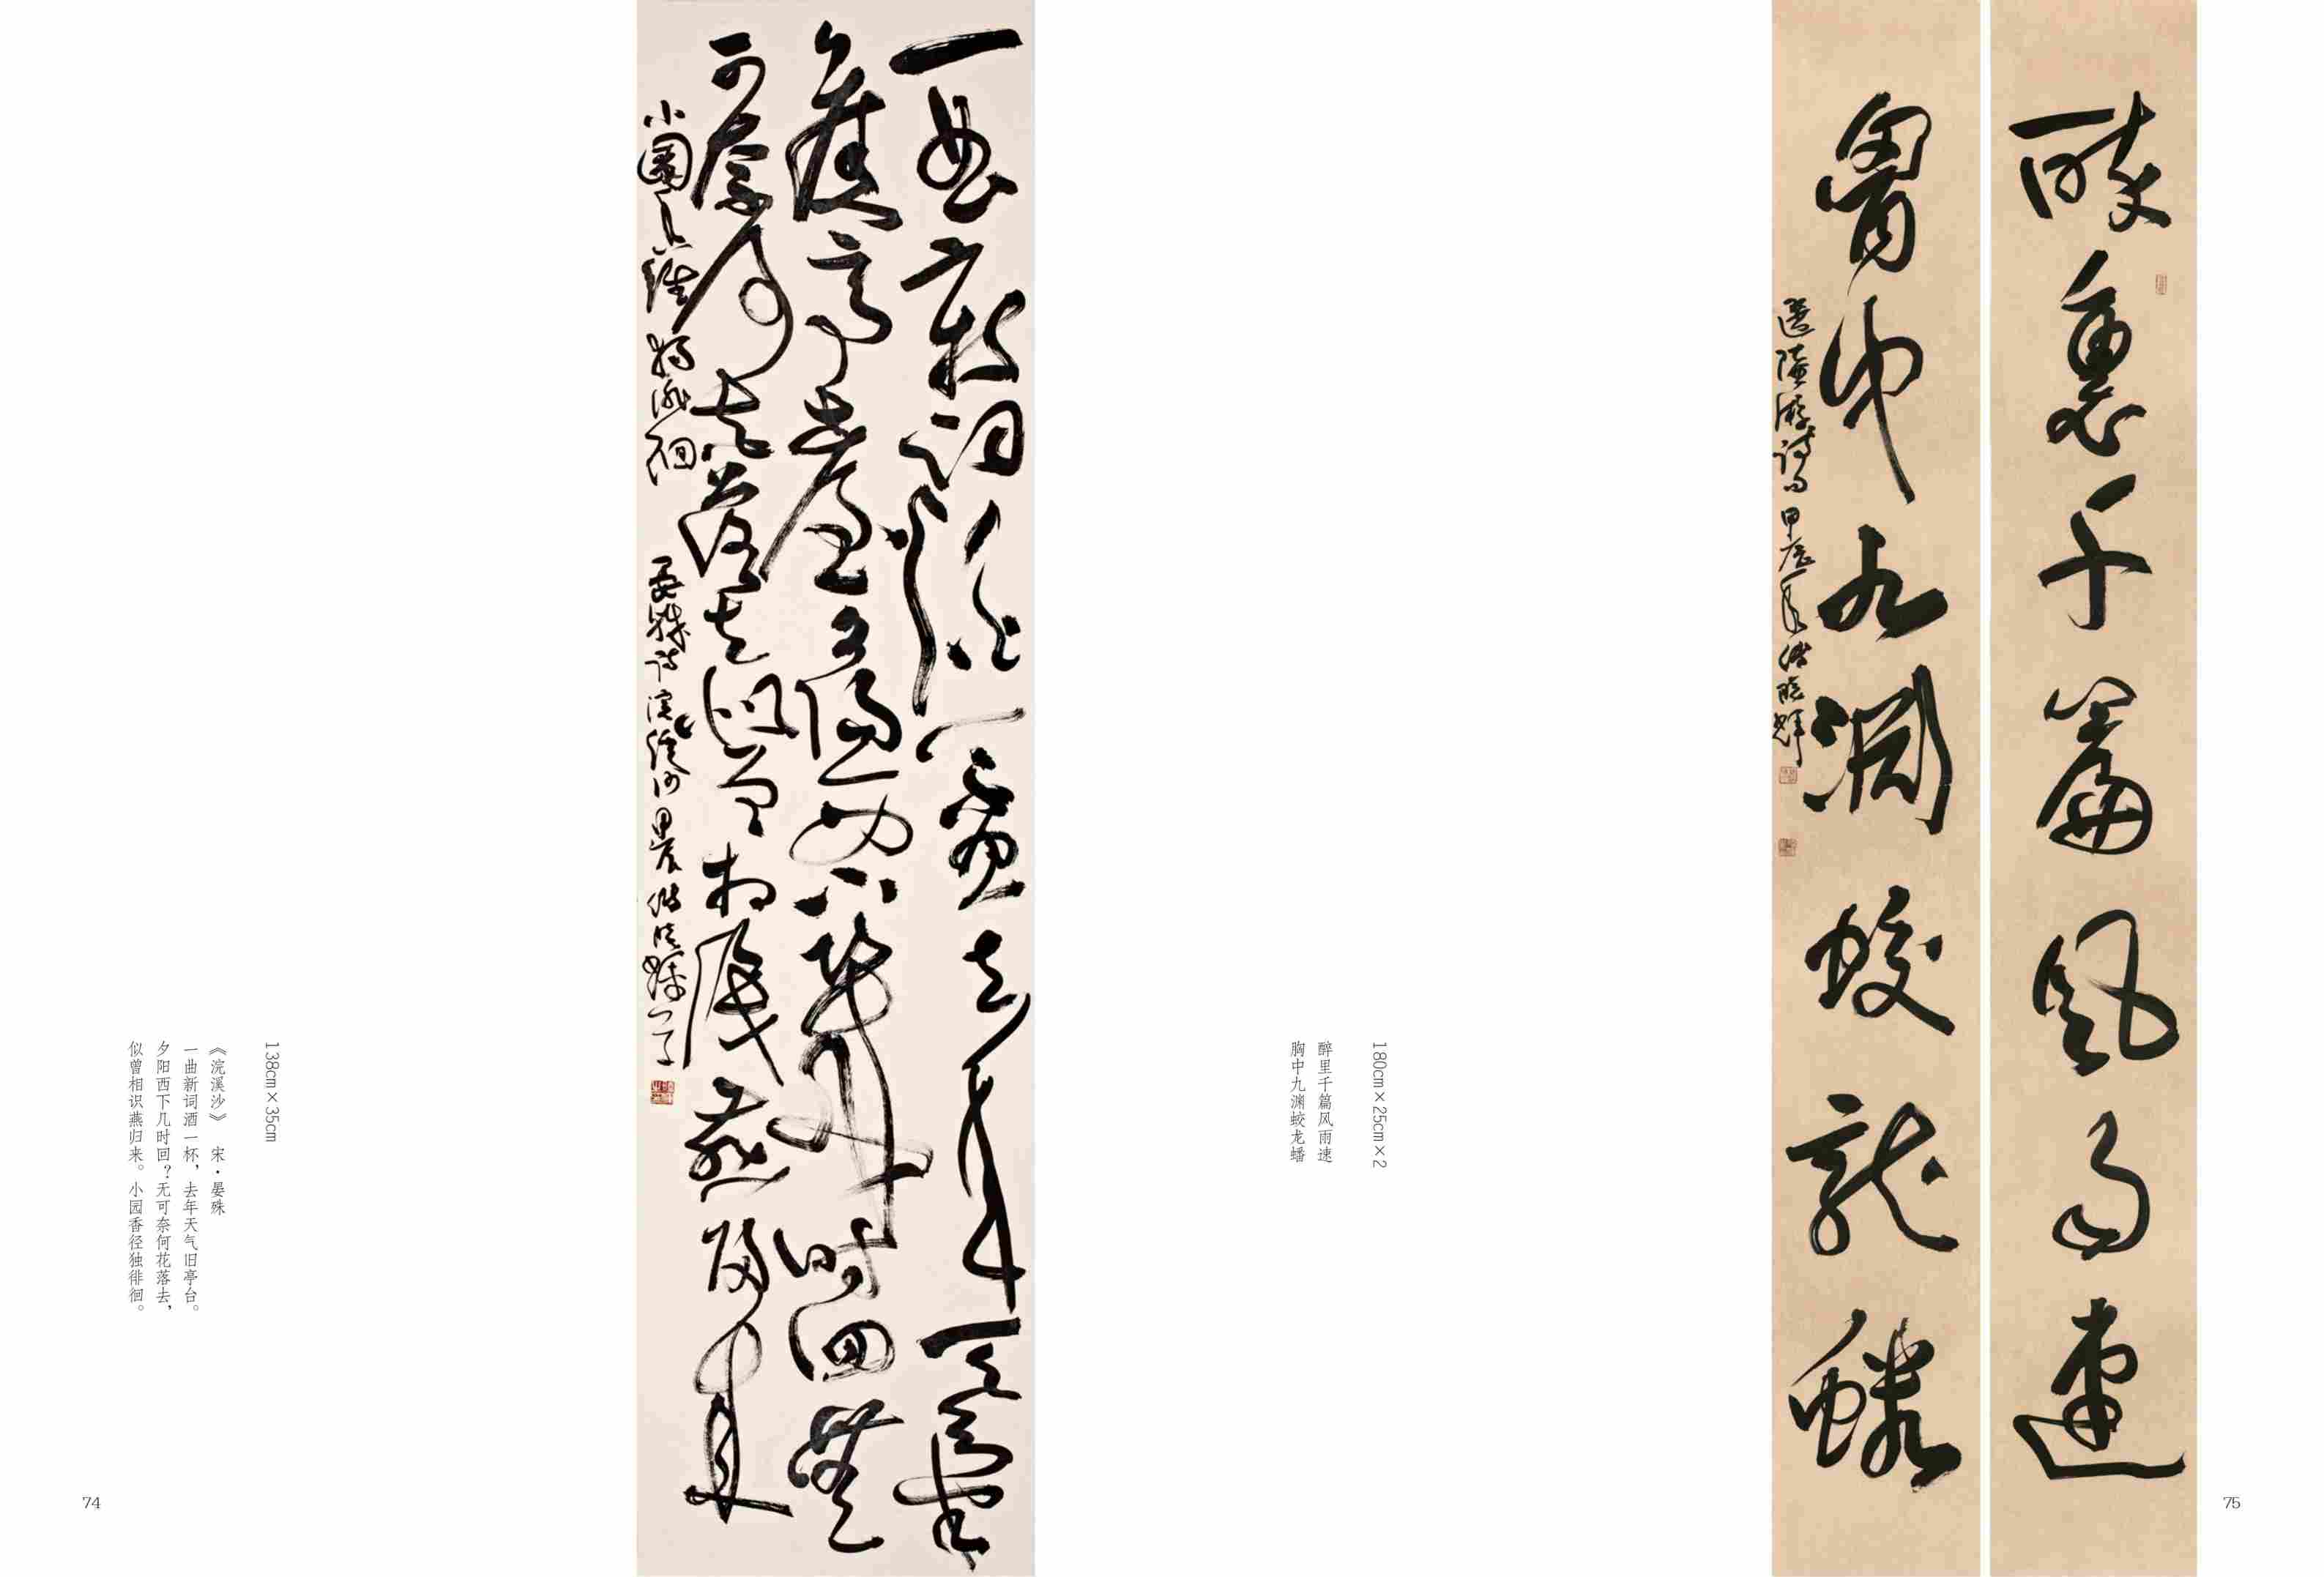 138cm×35cm
《浣溪沙》 宋·晏殊
一曲新词酒一杯，去年天气旧亭台。
夕阳西下几时回？无可奈何花落去，
似曾相识燕归来。小园香径独徘徊。
74
一曲新詞酒一盃去年天氣
舊亭臺夕陽西下幾時回無
可奈何花落去似曾相識燕歸來
小園香徑獨徘徊 晏殊詩浣溪沙甲辰
180cm×25cm×2
醉里千篇风雨速
胸中九渊蛟龙蟠
醉裏千篇風雨速
胷中九淵蛟龍蟠
選陸游詩句 甲辰年
75